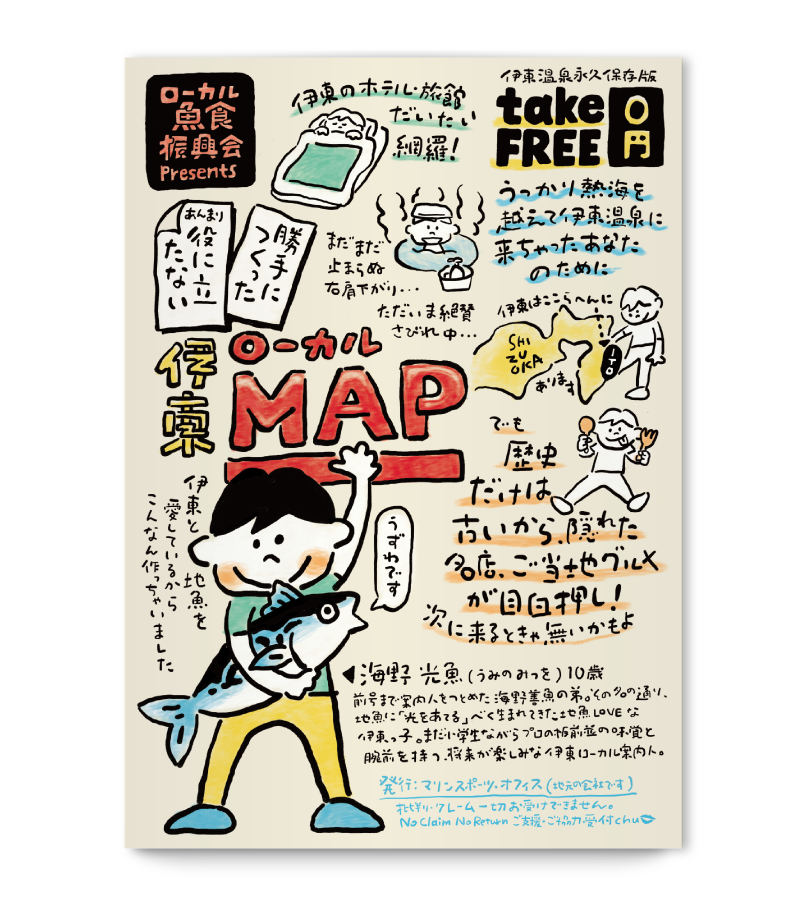 ローカル
魚食
振興会
Presents
伊東のホテル・旅館
だいたい
網羅！
伊東温泉永久保存版
take
FREE
0円
うっかり熱海を
越えて伊東温泉に
来ちゃったあなた
のために
あんまり
役に立
たない
勝手に
つくった
まだまだ
止まらぬ
右肩下がり...
ただいま絶賛
さびれ中...
伊東はここらへんに
SHI
ZU
OKA
ITO
あります
伊東
ローカル
MAP
でも
歴史
だけは
古いから、隠れた
名店、ご当地グルメ
が目白押し！
次に来るときゃ、無いかもよ
伊東と地魚を
愛しているから
こんなん作っちゃいました
うずわです
◀海野 光魚(うみのみつを)10歳
前号まで案内人をつとめた海野善魚の弟。その名の通り、
地魚に「光をあてる」べく生まれてきた地魚LOVEな
伊東っ子。まだ小学生ながらプロの板前並の味覚と
腕前を持つ、将来が楽しみな伊東ローカル案内人。
発行：マリンスポーツ・オフィス(地元の会社です)
批判・クレーム一切お受けできません。
No Claim No Return ご支援・ご協力受付chu